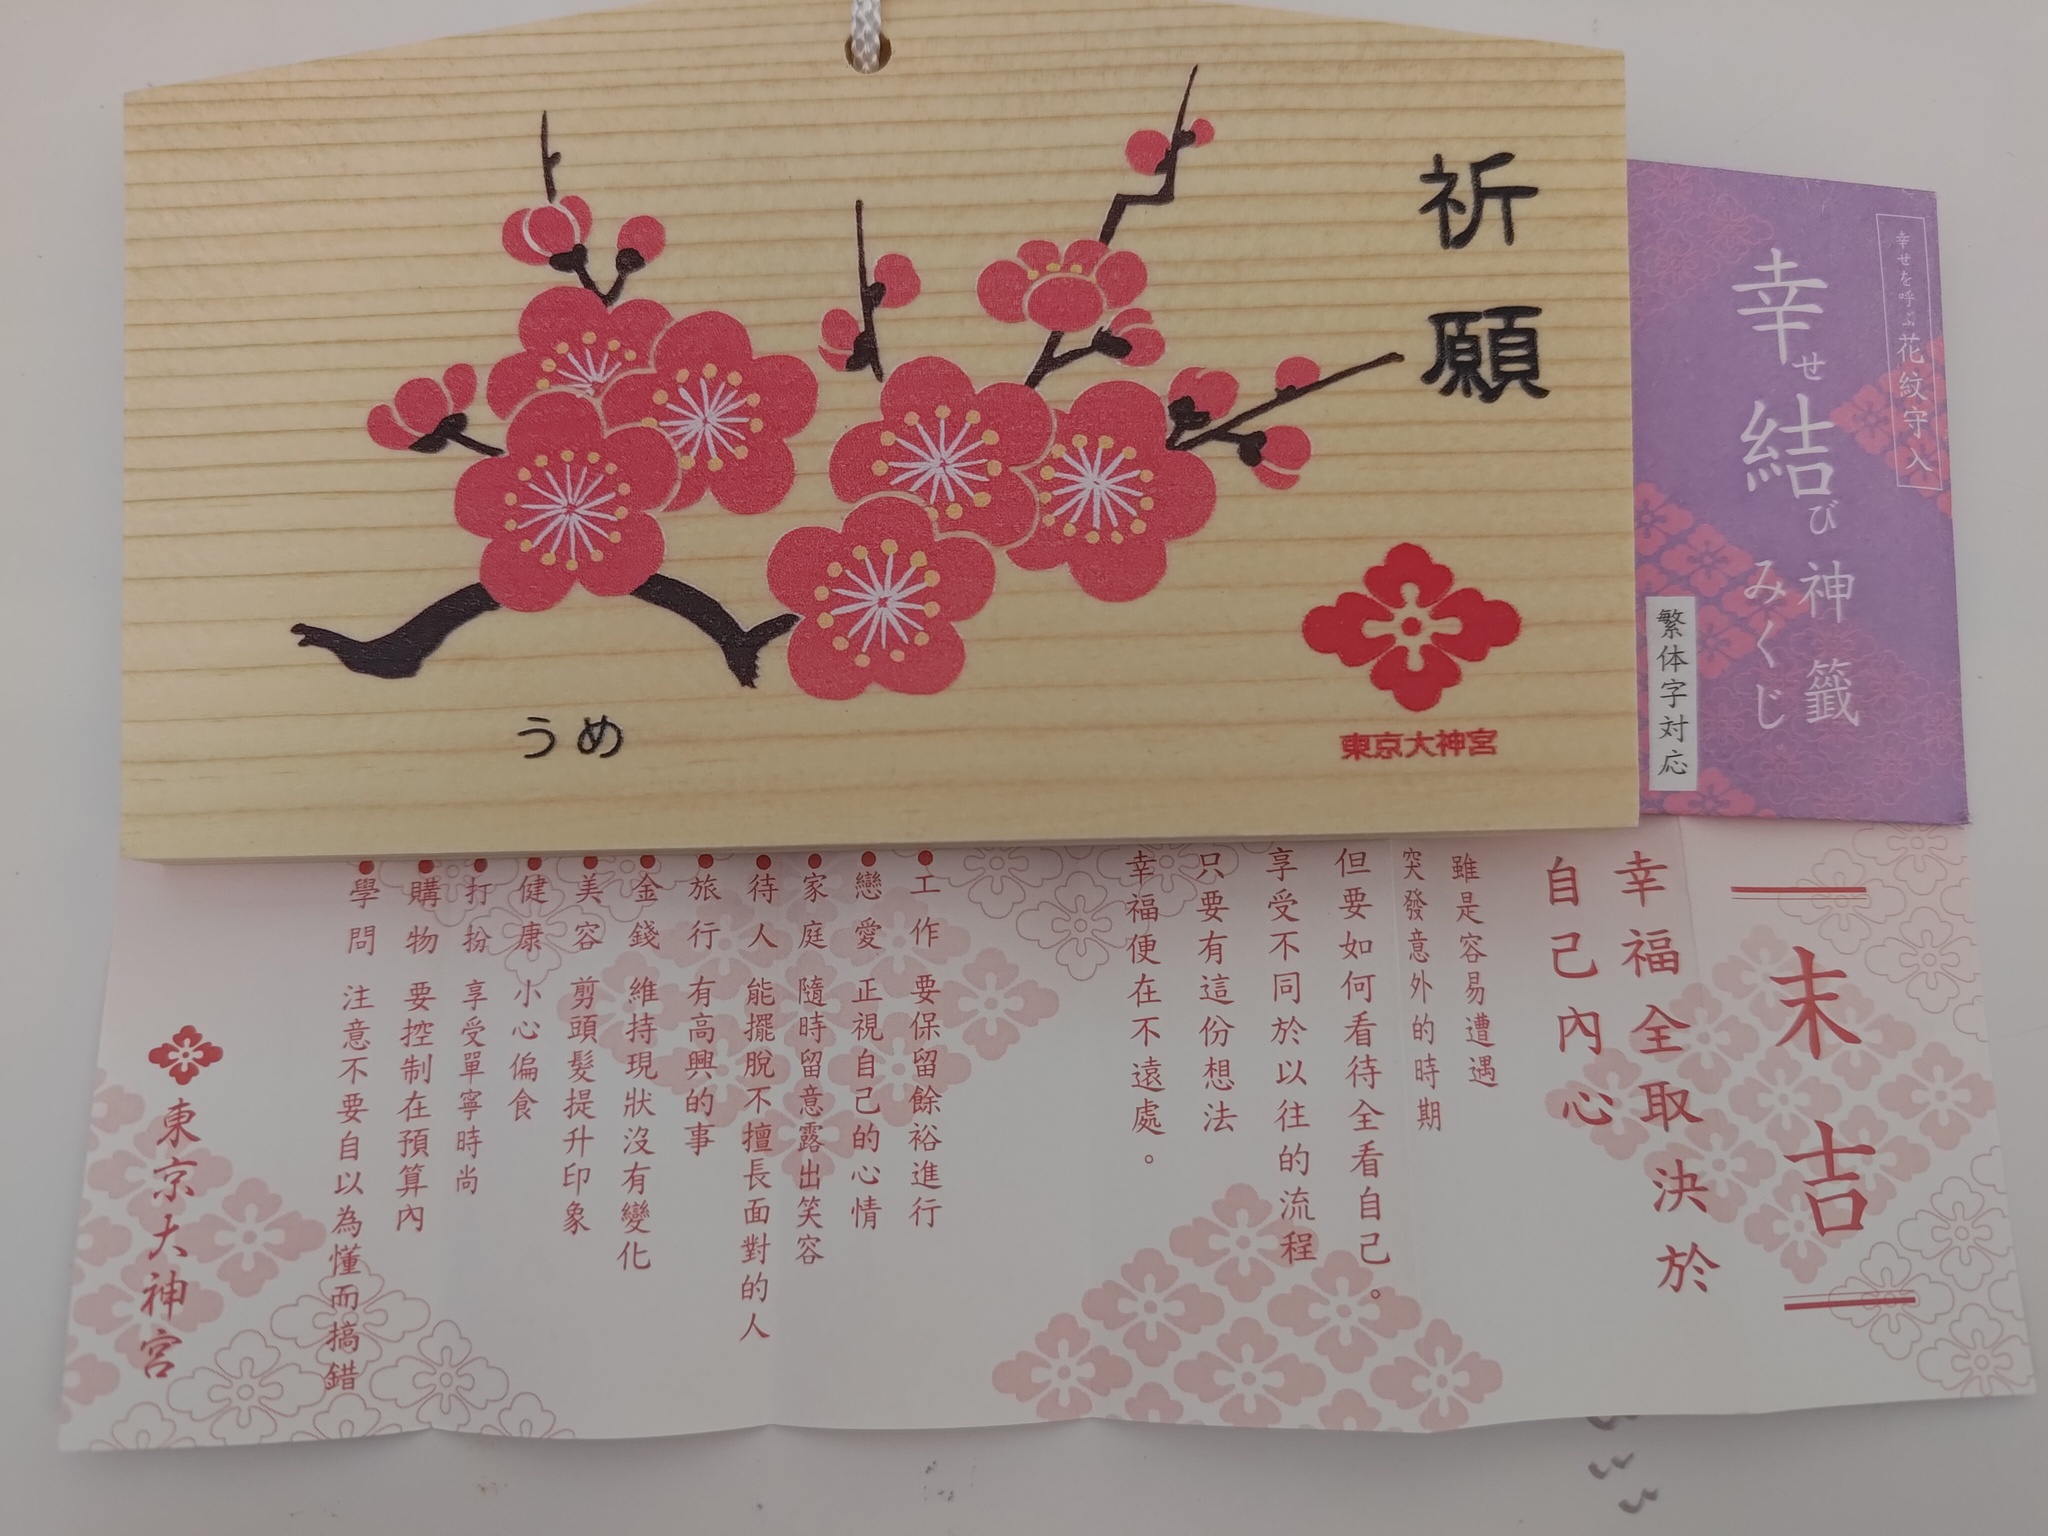 祈願
うめ
東京大神宮
幸せを呼ぶ花紋守入
幸せ結び神籤
みくじ
繁体字対応
末吉
幸福全取決於
自己內心
雖是容易遭遇
突發意外的時期
但要如何看待全看自己。
享受不同於以往的流程
只要有這份想法
幸福便在不遠處。
●工作 要保留餘裕進行
●戀愛 正視自己的心情
●家庭 隨時留意露出笑容
●待人 能擺脫不擅長面對的人
●旅行 有高興的事
●金錢 維持現狀沒有變化
●美容 剪頭髮提升印象
●健康 小心偏食
●打扮 享受單寧時尚
●購物 要控制在預算內
●學問 注意不要自以為懂而搞錯
東京大神宮